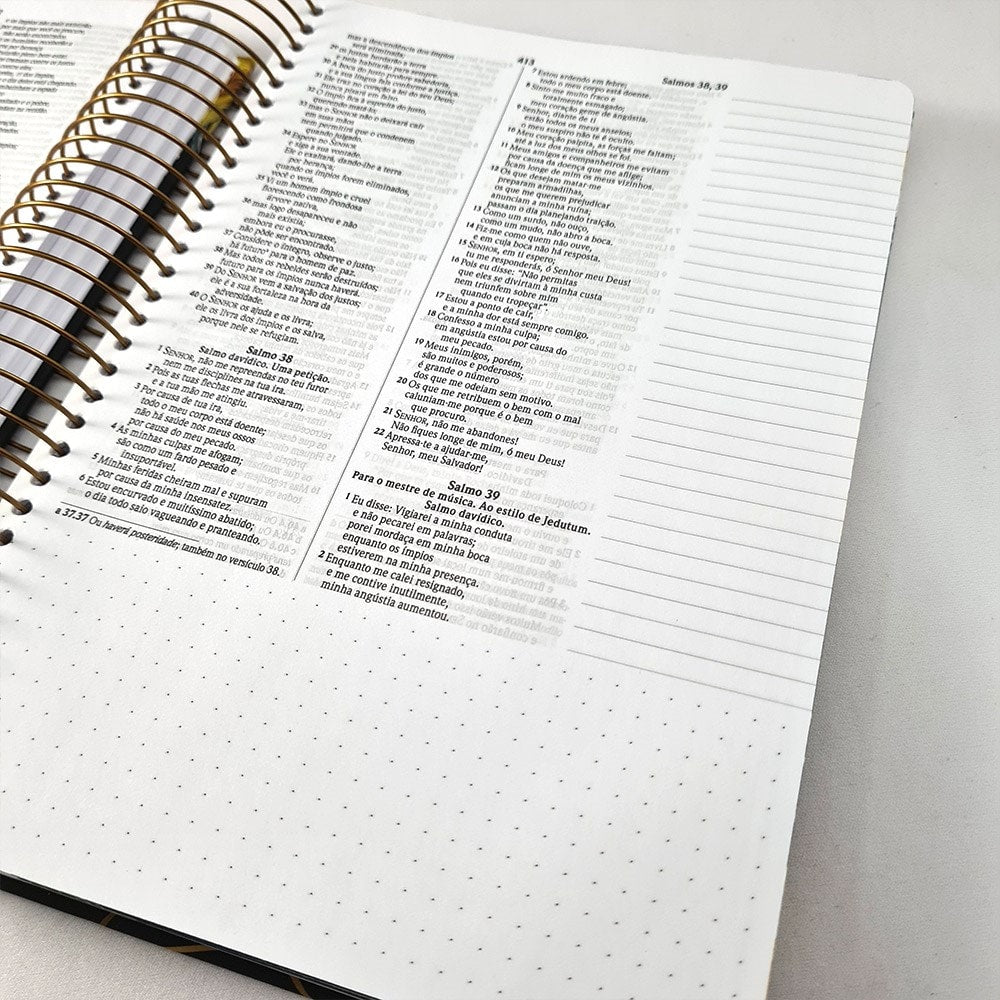 413
Salmos 38, 39
mas a descendência dos ímpios
será eliminada.
29 os justos herdarão a terra
e nela habitarão para sempre.
30 A boca do justo profere sabedoria,
e a sua língua fala conforme a justiça.
31 Ele traz no coração a lei do seu Deus;
nunca pisará em falso.
32 O ímpio fica à espreita do justo,
querendo matá-lo;
33 mas o SENHOR não o deixará cair
em suas mãos
nem permitirá que o condenem
quando julgado.
34 Espere no SENHOR
e siga a sua vontade.
Ele o exaltará, dando-lhe a terra
por herança;
quando os ímpios forem eliminados,
você o verá.
35 Vi um homem ímpio e cruel
florescendo como frondosa
árvore nativa,
36 mas logo desapareceu e não
mais existia;
embora eu o procurasse,
não pôde ser encontrado.
37 Considere o íntegro, observe o justo;
há futuro para o homem de paz.
38 Mas todos os rebeldes serão destruídos;
futuro para os ímpios nunca haverá.
39 Do SENHOR vem a salvação dos justos;
ele é a sua fortaleza na hora da
adversidade.
40 O SENHOR os ajuda e os livra;
ele os livra dos ímpios e os salva,
porque nele se refugiam.
Salmo 38
Salmo davídico. Uma petição.
1 SENHOR, não me repreendas no teu furor
nem me disciplines na tua ira.
2 Pois as tuas flechas me atravessaram,
e a tua mão me atingiu.
3 Por causa de tua ira,
todo o meu corpo está doente;
não há saúde nos meus ossos
por causa do meu pecado.
4 As minhas culpas me afogam;
são como um fardo pesado e
insuportável.
5 Minhas feridas cheiram mal e supuram
por causa da minha insensatez.
6 Estou encurvado e muitíssimo abatido;
o dia todo saio vagueando e pranteando.
a 37.37 Ou haverá posteridade; também no versículo 38.
7 Estou ardendo em febre;
todo o meu corpo está doente.
8 Sinto-me muito fraco e
totalmente esmagado;
meu coração geme de angústia.
9 Senhor, diante de ti
estão todos os meus anseios;
o meu suspiro não te é oculto.
10 Meu coração palpita, as forças me faltam;
até a luz dos meus olhos se foi.
11 Meus amigos e companheiros me evitam
por causa da doença que me aflige;
ficam longe de mim os meus vizinhos.
12 Os que desejam matar-me
preparam armadilhas,
os que me querem prejudicar
anunciam a minha ruína;
passam o dia planejando traição.
13 Como um surdo, não ouço,
como um mudo, não abro a boca.
14 Fiz-me como quem não ouve,
e em cuja boca não há resposta.
15 SENHOR, em ti espero;
tu me responderás, ó Senhor meu Deus!
16 Pois eu disse: "Não permitas
que eles se divirtam à minha custa
nem triunfem sobre mim
quando eu tropeçar".
17 Estou a ponto de cair,
e a minha dor está sempre comigo.
18 Confesso a minha culpa;
em angústia estou por causa do
meu pecado.
19 Meus inimigos, porém,
são muitos e poderosos;
é grande o número
dos que me odeiam sem motivo.
20 Os que me retribuem o bem com o mal
caluniam-me porque é o bem
que procuro.
21 SENHOR, não me abandones!
Não fiques longe de mim, ó meu Deus!
22 Apressa-te a ajudar-me,
Senhor, meu Salvador!
Salmo 39
Para o mestre de música. Ao estilo de Jedutum.
Salmo davídico.
1 Eu disse: Vigiarei a minha conduta
e não pecarei em palavras;
porei mordaça em minha boca
enquanto os ímpios
estiverem na minha presença.
2 Enquanto me calei resignado,
e me contive inutilmente,
minha angústia aumentou.